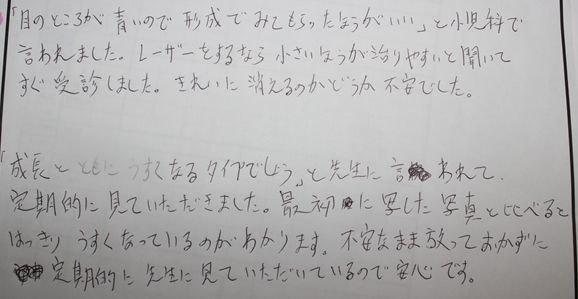 「目のところが青いので形成でみてもらったほうがいい」と小児科で
言われました。レーザーをするなら小さいほうが治りやすいと聞いて
すぐ受診しました。きれいに消えるのかどうか不安でした。
「成長とともにうすくなるタイプでしょう」と先生に言われて、
定期的に見ていただきました。最初に写した写真と比べると
はっきりうすくなっているのがわかります。不安なまま放っておかずに
定期的に先生に見ていただいているので安心です。